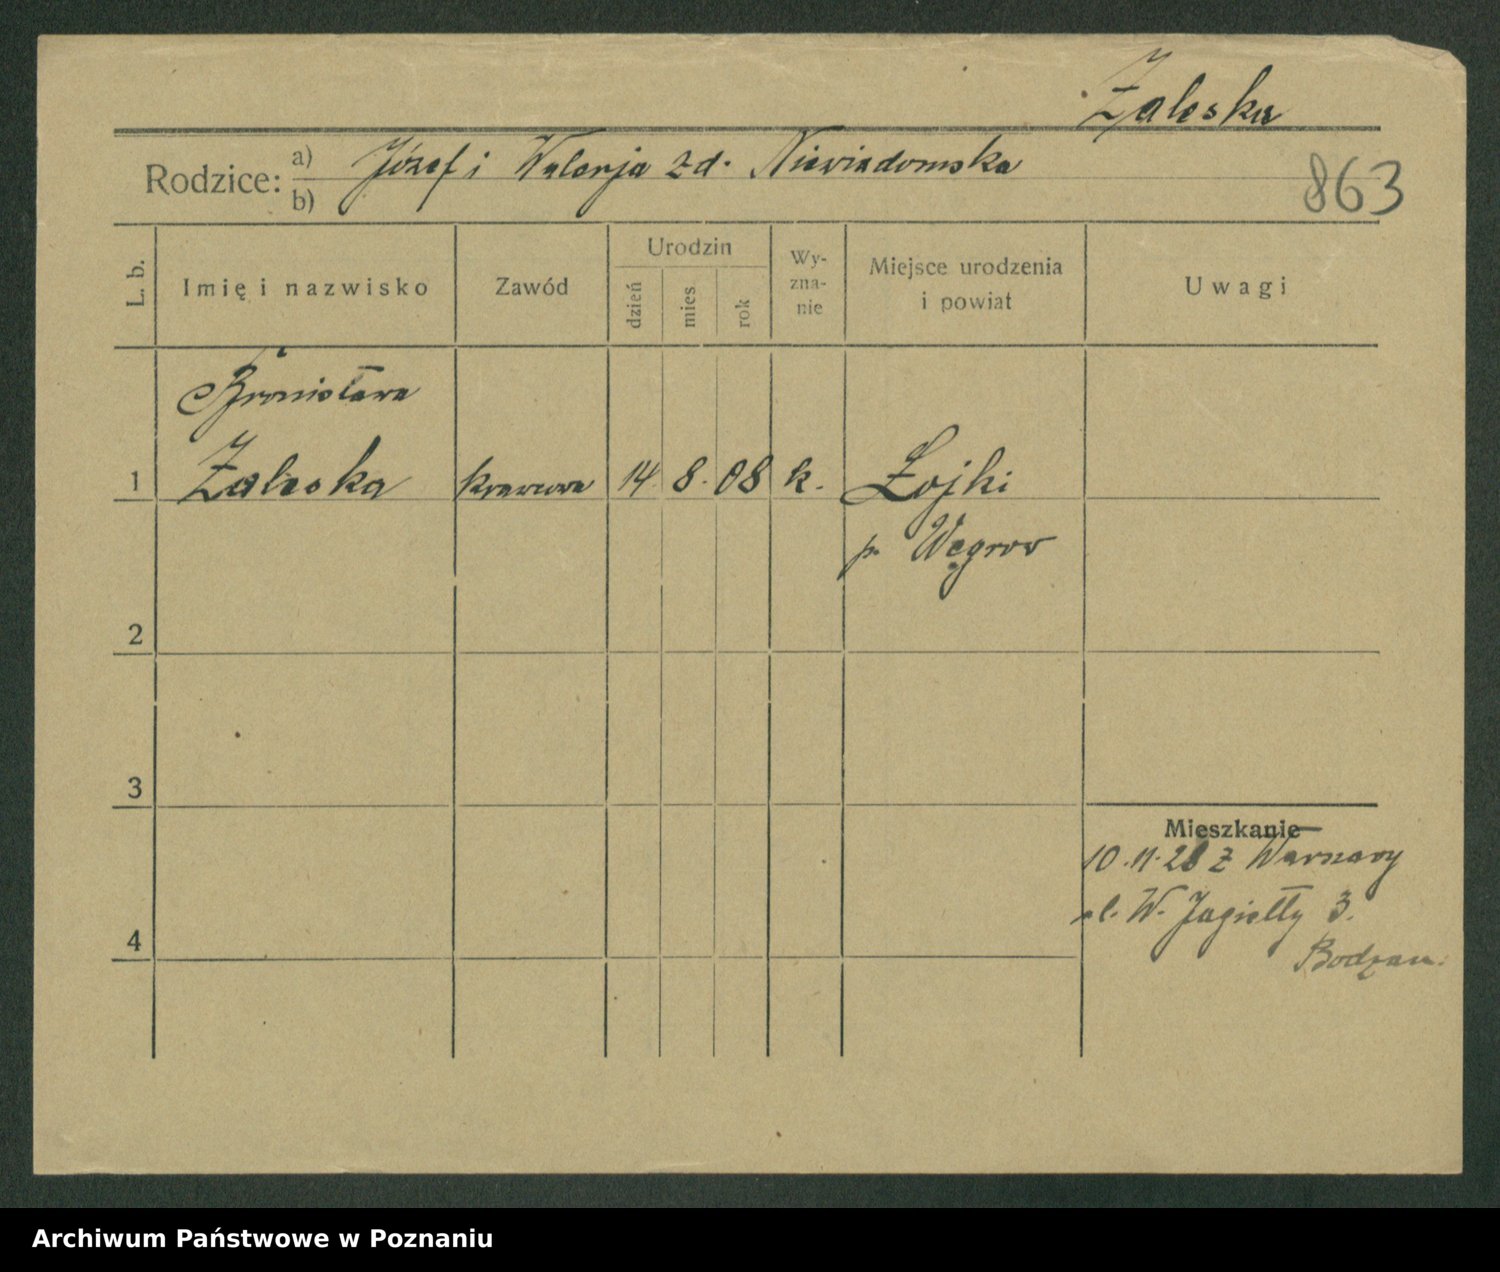 Zaleska
Rodzice: a) Józef i Walerja zd. Niewiadomska
b)
863
L. b. Imię i nazwisko Zawód Urodzin dzień mies rok Wy-zna-nie Miejsce urodzenia i powiat Uwagi
Bronisława
1 Zaleska krawcowa 14 8. 08 k. Łojki
p. Węgrow
2
3
Mieszkanie
10.11.28 z Warszawy
ul. W. Jagiełły 3.
4
Archiwum Państwowe w Poznaniu